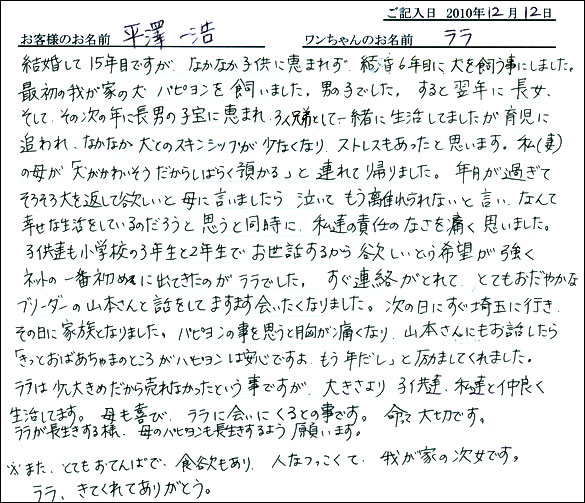 ご記入日 2010年12月12日
お客様のお名前 平澤 一浩 ワンちゃんのお名前 ララ
結婚して15年目ですが、なかなか子供に恵まれず、結婚6年目に犬を飼う事にしました。
最初の我が家の犬 パピヨンを飼いました。男の子でした。すると翌年に長女、
そして、その次の年に長男の子宝に恵まれ、3人兄弟として一緒に生活してましたが育児に
追われ、なかなか犬とのスキンシップが少なくなり、ストレスもあったと思います。私(妻)
の母が「犬がかわいそうだからしばらく預かる」と連れて帰りました。年月が過ぎて
そろそろ犬を返して欲しいと母に言いましたら 泣いて もう離れられないと言い、なんて
幸せな生活をしているのだろうと思うと同時に、私達の責任のなさを痛く思いました。
子供達も小学校の3年生と2年生でお世話するから欲しいという希望が強く
ネットの一番初めに出てきたのがララでした。すぐ連絡がとれて、とてもおだやかな
ブリーダーの山本さんと話をしてますます会いたくなりました。次の日にすぐ埼玉に行き、
その日に家族となりました。パピヨンの事を思うと胸が痛くなり、山本さんにもお話したら
「きっとおばあちゃまのところがパピヨンは安心ですよ、もう年だし」と励ましてくれました。
ララは少し大きめだから売れなかったという事ですが、大きさより 子供達、私達と仲良く
生活してます。母も喜び、ララに会いにくるとの事です。命って大切です。
ララが長生きする様、母のパピヨンも長生きするよう願います。
※また、とてもおてんばで、食欲もあり、人なつっこくて、我が家の次女です。
ララ、きてくれてありがとう。